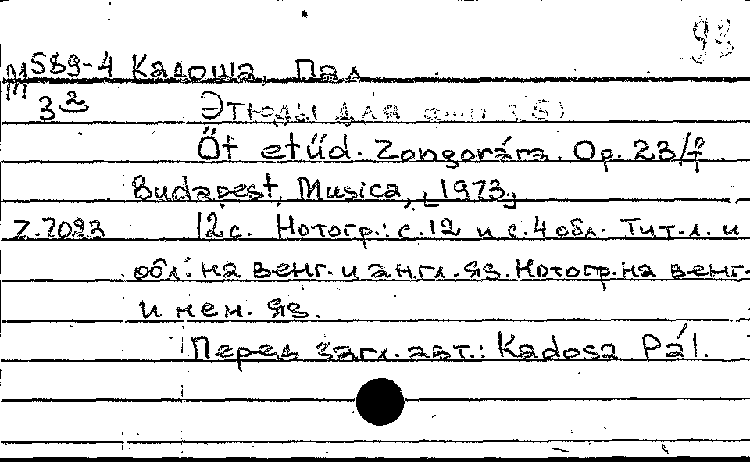 93
М589-4 Кадоша, Пал
3 2 Этюды для ф-п (5)
Öt etűd. Zongorára. Op. 23/f.
Budapest, Musica, [1973]
Z.7023 12 с. Нотогр.: с. 12 и с. 4 обл. Тит. л. и
обл. на венг. и англ. яз. Нотогр. на венг.
и нем. яз.
Перед загл. авт.: Kadosa Pál.